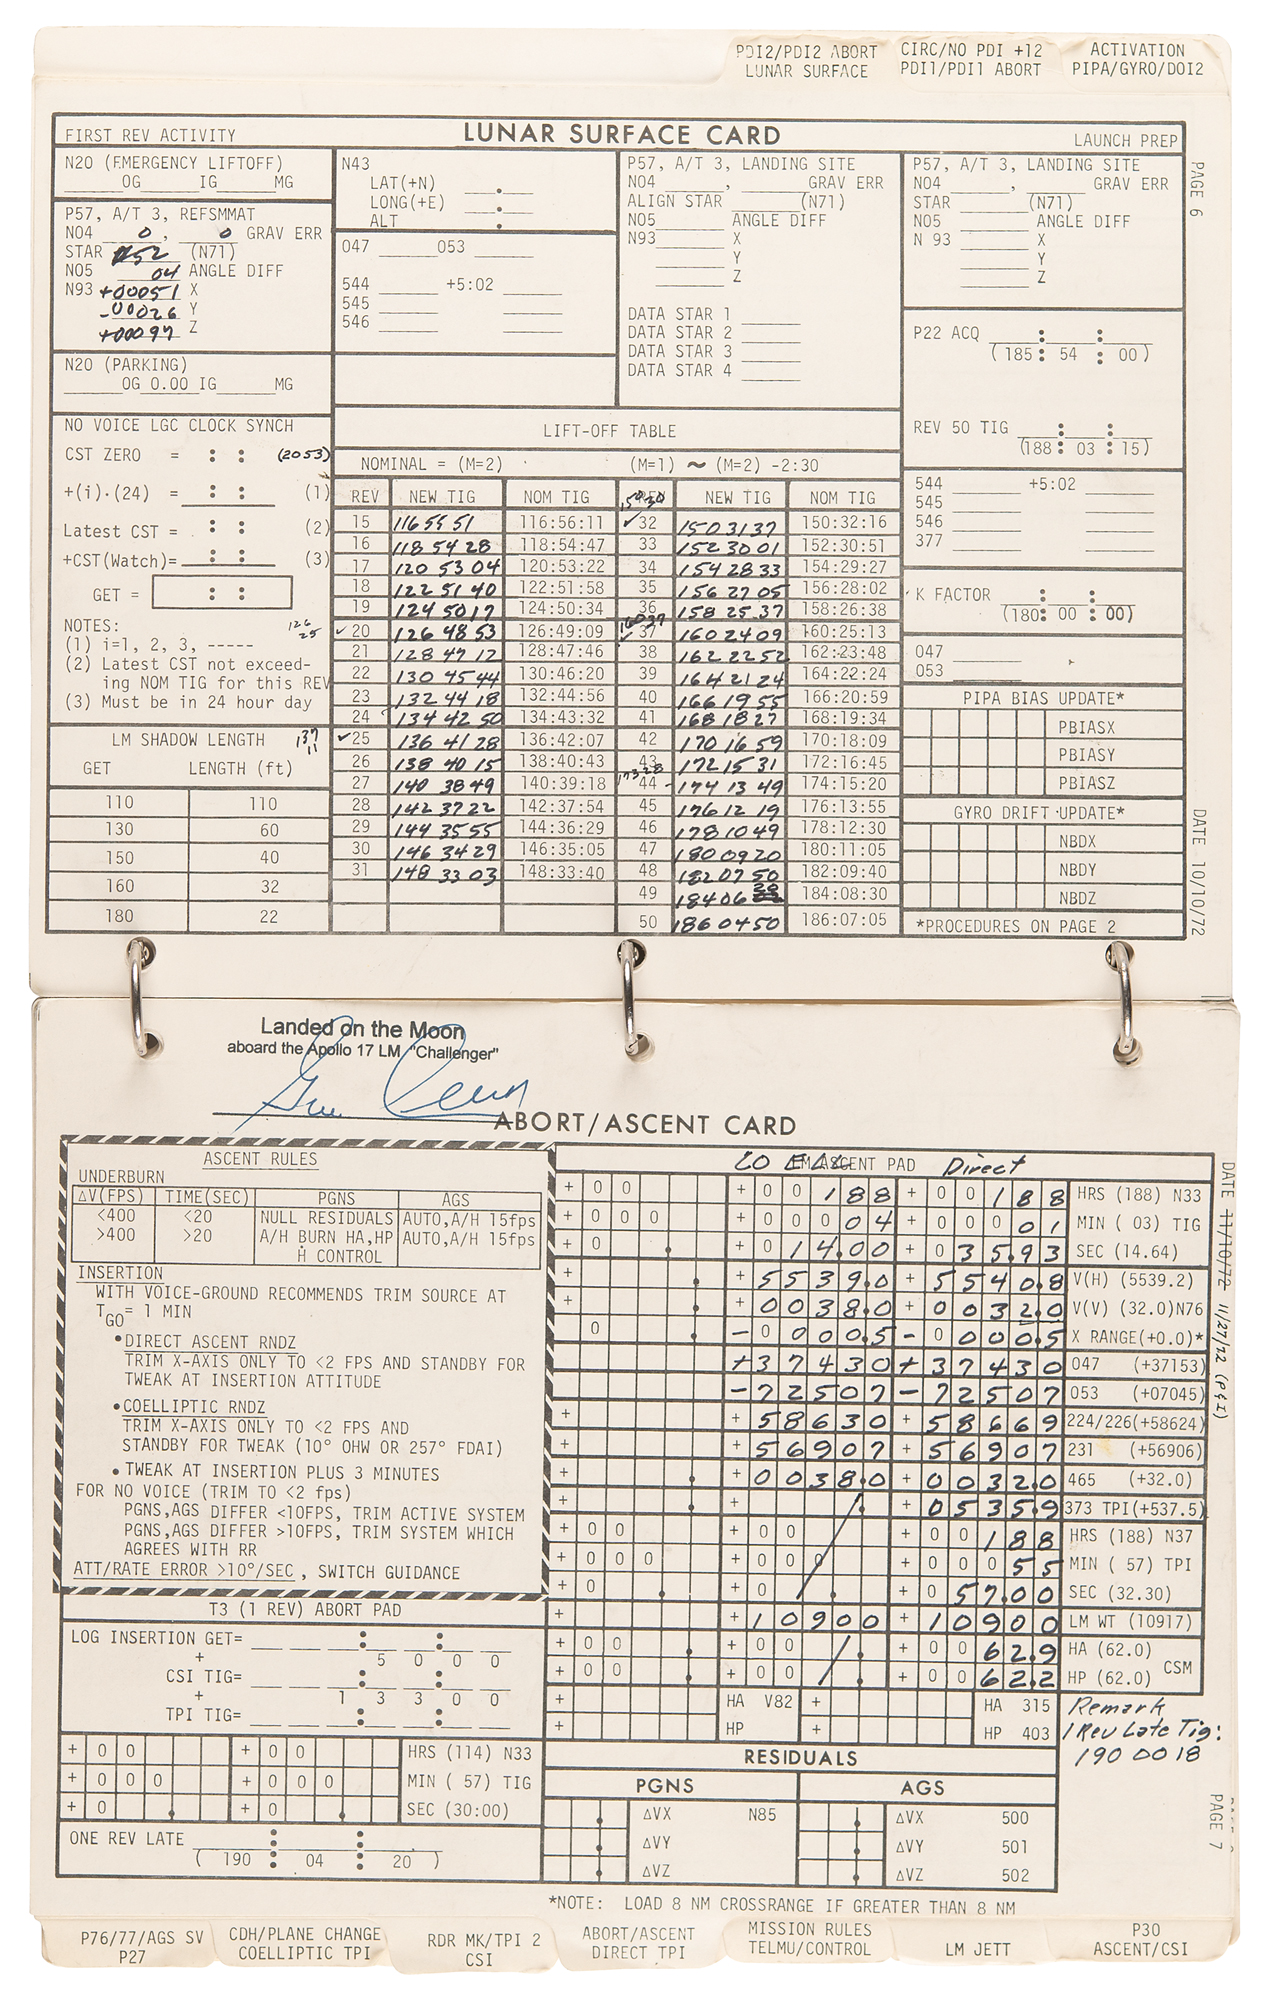 PDI2/PDI2 ABORT LUNAR SURFACE
CIRC/NO PDI +12 PDI1/PDI1 ABORT
ACTIVATION PIPA/GYRO/DOI2
FIRST REV ACTIVITY
LUNAR SURFACE CARD
LAUNCH PREP
PAGE 6
DATE 10/10/72
N20 (EMERGENCY LIFTOFF)
OG IG MG
P57, A/T 3, REFSMMAT
N04 0 , 0 GRAV ERR
STAR 52 (N71)
N05 04 ANGLE DIFF
N93 +00051 X
-00026 Y
+00097 Z
N20 (PARKING)
OG 0.00 IG MG
N43
LAT(+N) .
LONG(+E) .
ALT .
047 053
544 +5:02
545
546
P57, A/T 3, LANDING SITE
N04 , GRAV ERR
ALIGN STAR (N71)
N05 ANGLE DIFF
N93 X
Y
Z
DATA STAR 1
DATA STAR 2
DATA STAR 3
DATA STAR 4
P57, A/T 3, LANDING SITE
N04 , GRAV ERR
STAR (N71)
N05 ANGLE DIFF
N 93 X
Y
Z
P22 ACQ : :
(185: 54 : 00)
REV 50 TIG : :
(188: 03 : 15)
544 +5:02
545
546
377
K FACTOR : :
(180: 00 : 00)
047
053
PIPA BIAS UPDATE*
PBIASX
PBIASY
PBIASZ
GYRO DRIFT UPDATE*
NBDX
NBDY
NBDZ
*PROCEDURES ON PAGE 2
NO VOICE LGC CLOCK SYNCH
CST ZERO = : : (2053)
+(i)·(24) = : : (1)
Latest CST = : : (2)
+CST(Watch)= : : (3)
GET = : :
NOTES:
(1) i=1, 2, 3, -----
(2) Latest CST not exceed-
ing NOM TIG for this REV
(3) Must be in 24 hour day
126 25
LM SHADOW LENGTH
137 11
GET LENGTH (ft)
110 110
130 60
150 40
160 32
180 22
LIFT-OFF TABLE
NOMINAL = (M=2) (M=1) ~ (M=2) -2:30
REV NEW TIG NOM TIG NEW TIG NOM TIG
15 116 55 51 116:56:11 ✓32 150 31 37 150:32:16
16 118 54 28 118:54:47 33 152 30 01 152:30:51
17 120 53 04 120:53:22 34 154 28 33 154:29:27
18 122 51 40 122:51:58 35 156 27 05 156:28:02
19 124 50 17 124:50:34 36 158 25 37 158:26:38
✓20 126 48 53 126:49:09 ✓37 160 24 09 160:25:13
21 128 47 12 128:47:46 38 162 22 52 162:23:48
22 130 45 44 130:46:20 39 164 21 24 164:22:24
23 132 44 18 132:44:56 40 166 19 55 166:20:59
24 134 42 50 134:43:32 41 168 18 27 168:19:34
✓25 136 41 28 136:42:07 42 170 16 59 170:18:09
26 138 40 15 138:40:43 43 172 15 31 172:16:45
27 140 38 49 140:39:18 44 174 13 49 174:15:20
28 142 37 22 142:37:54 45 176 12 19 176:13:55
29 144 35 55 144:36:29 46 178 10 49 178:12:30
30 146 34 29 146:35:05 47 180 09 20 180:11:05
31 148 33 03 148:33:40 48 182 07 50 182:09:40
49 184 06 184:08:30
50 186 04 50 186:07:05
Landed on the Moon
aboard the Apollo 17 LM "Challenger"
Gene Cernan
ABORT/ASCENT CARD
DATE 11/10/72 11/27/72 (P&I)
PAGE 7
ASCENT RULES
UNDERBURN
ΔV(FPS) TIME(SEC) PGNS AGS
<400 <20 NULL RESIDUALS AUTO,A/H 15fps
>400 >20 A/H BURN HA,HP AUTO,A/H 15fps
Ḣ CONTROL
INSERTION
WITH VOICE-GROUND RECOMMENDS TRIM SOURCE AT
TGO= 1 MIN
•DIRECT ASCENT RNDZ
TRIM X-AXIS ONLY TO <2 FPS AND STANDBY FOR
TWEAK AT INSERTION ATTITUDE
•COELLIPTIC RNDZ
TRIM X-AXIS ONLY TO <2 FPS AND
STANDBY FOR TWEAK (10° OHW OR 257° FDAI)
•TWEAK AT INSERTION PLUS 3 MINUTES
FOR NO VOICE (TRIM TO <2 fps)
PGNS,AGS DIFFER <10FPS, TRIM ACTIVE SYSTEM
PGNS,AGS DIFFER >10FPS, TRIM SYSTEM WHICH
AGREES WITH RR
ATT/RATE ERROR >10°/SEC, SWITCH GUIDANCE
T3 (1 REV) ABORT PAD
LOG INSERTION GET= : :
+ 5 0 : 0 0
CSI TIG= : :
+ 1 : 3 3 : 0 0
TPI TIG= : :
+ 0 0 + 0 0 HRS (114) N33
+ 0 0 0 + 0 0 0 MIN ( 57) TIG
+ 0 . + 0 . SEC (30:00)
ONE REV LATE : :
( 190 : 04 : 20 )
CO ELL LM ASCENT PAD Direct
+ 0 0 + 0 0 1 8 8 + 0 0 1 8 8 HRS (188) N33
+ 0 0 0 + 0 0 0 0 4 + 0 0 0 0 1 MIN ( 03) TIG
+ 0 . + 0 1 4.0 0 + 0 3 5.9 3 SEC (14.64)
+ . + 5 5 3 9.0 + 5 5 4 0.8 V(H) (5539.2)
+ . + 0 0 3 8.0 + 0 0 3 2.0 V(V) (32.0)N76
0 . - 0 0 0 0.5 - 0 0 0 0.5 X RANGE(+0.0)*
+ 3 7 4 3 0 + 3 7 4 3 0 047 (+37153)
- 7 2 5 0 7 - 7 2 5 0 7 053 (+07045)
+ + 5 8 6 3 0 + 5 8 6 6 9 224/226(+58624)
+ + 5 6 9 0 7 + 5 6 9 0 7 231 (+56906)
+ . + 0 0 3 8.0 + 0 0 3 2.0 465 (+32.0)
+ . + . + 0 5 3 5.9 373 TPI(+537.5)
+ 0 0 + 0 0 + 0 0 1 8 8 HRS (188) N37
+ 0 0 0 + 0 0 0 + 0 0 0 5 5 MIN ( 57) TPI
+ 0 . + 0 . + 0 5 7.0 0 SEC (32.30)
+ + 1 0 9 0 0 + 1 0 9 0 0 LM WT (10917)
+ 0 0 . + 0 0 . + 0 0 6 2.9 HA (62.0)
+ 0 0 . + 0 0 . + 0 0 6 2.2 HP (62.0)
CSM
+ HA V82 + HA 315
+ HP + HP 403
Remark
1 Rev Late Tig:
190 00 18
RESIDUALS
PGNS AGS
ΔVX N85 ΔVX 500
ΔVY ΔVY 501
ΔVZ ΔVZ 502
*NOTE: LOAD 8 NM CROSSRANGE IF GREATER THAN 8 NM
P76/77/AGS SV P27
CDH/PLANE CHANGE COELLIPTIC TPI
RDR MK/TPI 2 CSI
ABORT/ASCENT DIRECT TPI
MISSION RULES TELMU/CONTROL
LM JETT
P30 ASCENT/CSI